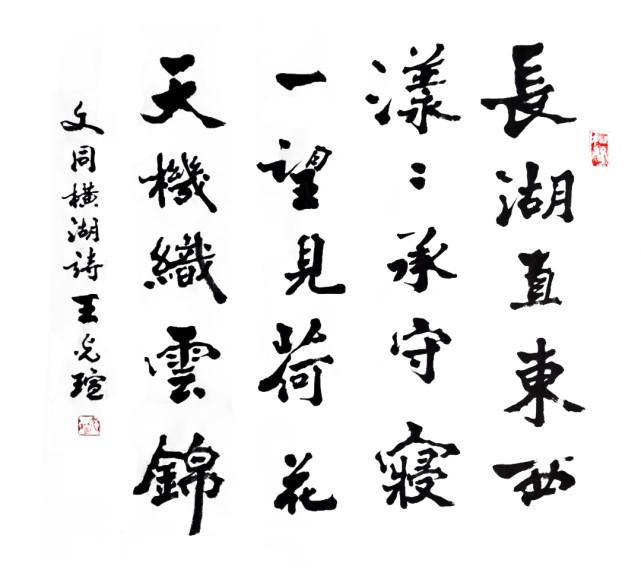 長湖直東西
漾：承守寢
一望見荷花
天機織雲錦
文同橫湖詩王光瑄